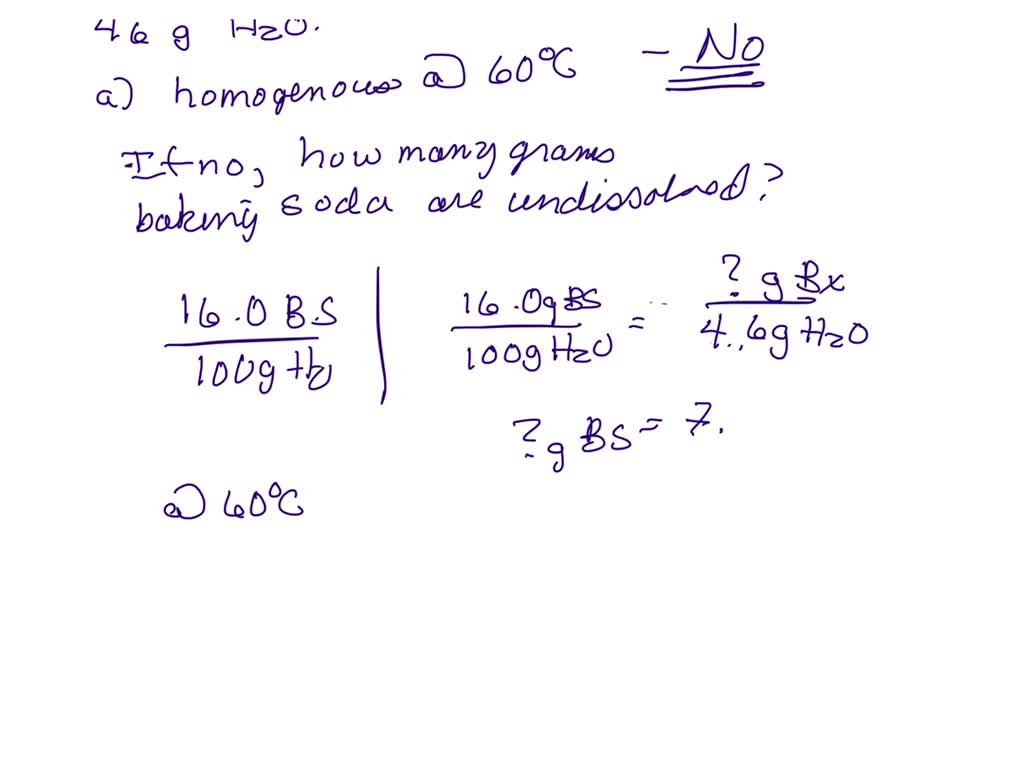 46 g H2O.
a) homogenous @ 60°C - No
If no, how many grams
baking soda are undissolved?
16.0 B.S
100g H2O
16.0g BS
100g H2O
=
? g Bx
4.,6g H2O
?g BS = 7.
@ 60°C